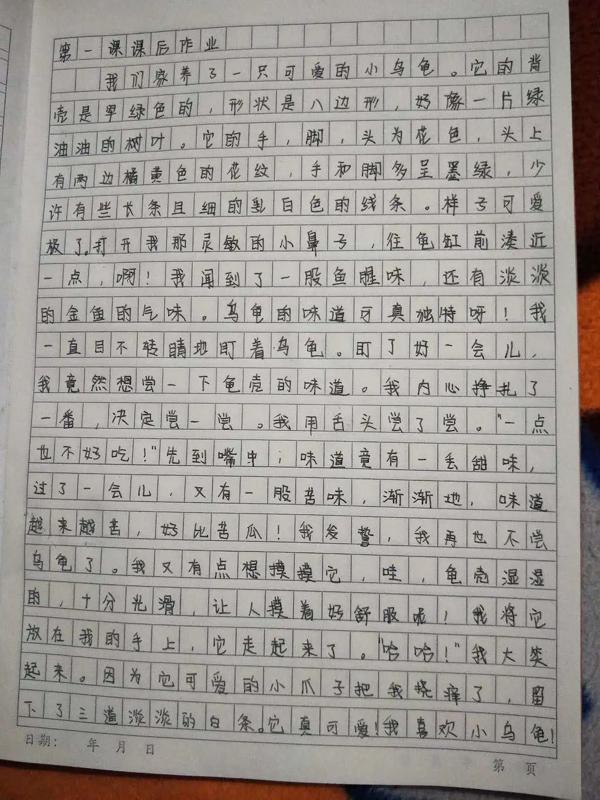 第一课课后作业
我们家养了一只可爱的小乌龟。它的背
壳是翠绿色的，形状是八边形，好像一片绿
油油的树叶。它的手，脚，头为花色，头上
有两边橘黄色的花纹，手和脚多呈墨绿，少
许有些长条且细的乳白色的线条。样子可爱
极了。打开我那灵敏的小鼻子，往龟缸前凑近
一点，啊！我闻到了一股鱼腥味，还有淡淡
的金鱼的气味。乌龟的味道可真独特呀！我
一直目不转睛地盯着乌龟。盯了好一会儿，
我竟然想尝一下龟壳的味道。我内心挣扎了
一番，决定尝一尝。我用舌头尝了尝。"一点
也不好吃！"先到嘴中；味道竟有一丢甜味，
过了一会儿，又有一股苦味，渐渐地，味道
越来越苦，好比苦瓜！我发誓，我再也不尝
乌龟了。我又有点想摸摸它，哇，龟壳湿湿
的，十分光滑，让人摸着好舒服啦！我将它
放在我的手上，它走起来了。"哈哈！"我大笑
起来。因为它可爱的小爪子把我挠痒了，留
下了三道淡淡的白条。它真可爱！我喜欢小乌龟！
日期： 年 月 日
第 页